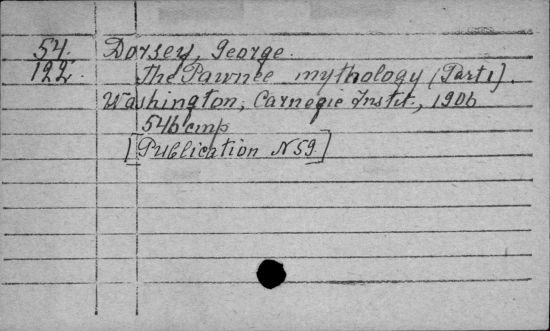 54. Dorsey, George.
122. The Pawnee mythology (Part 1).
Washington, Carnegie Instit., 1906
546 стр
[Publication N 59.]